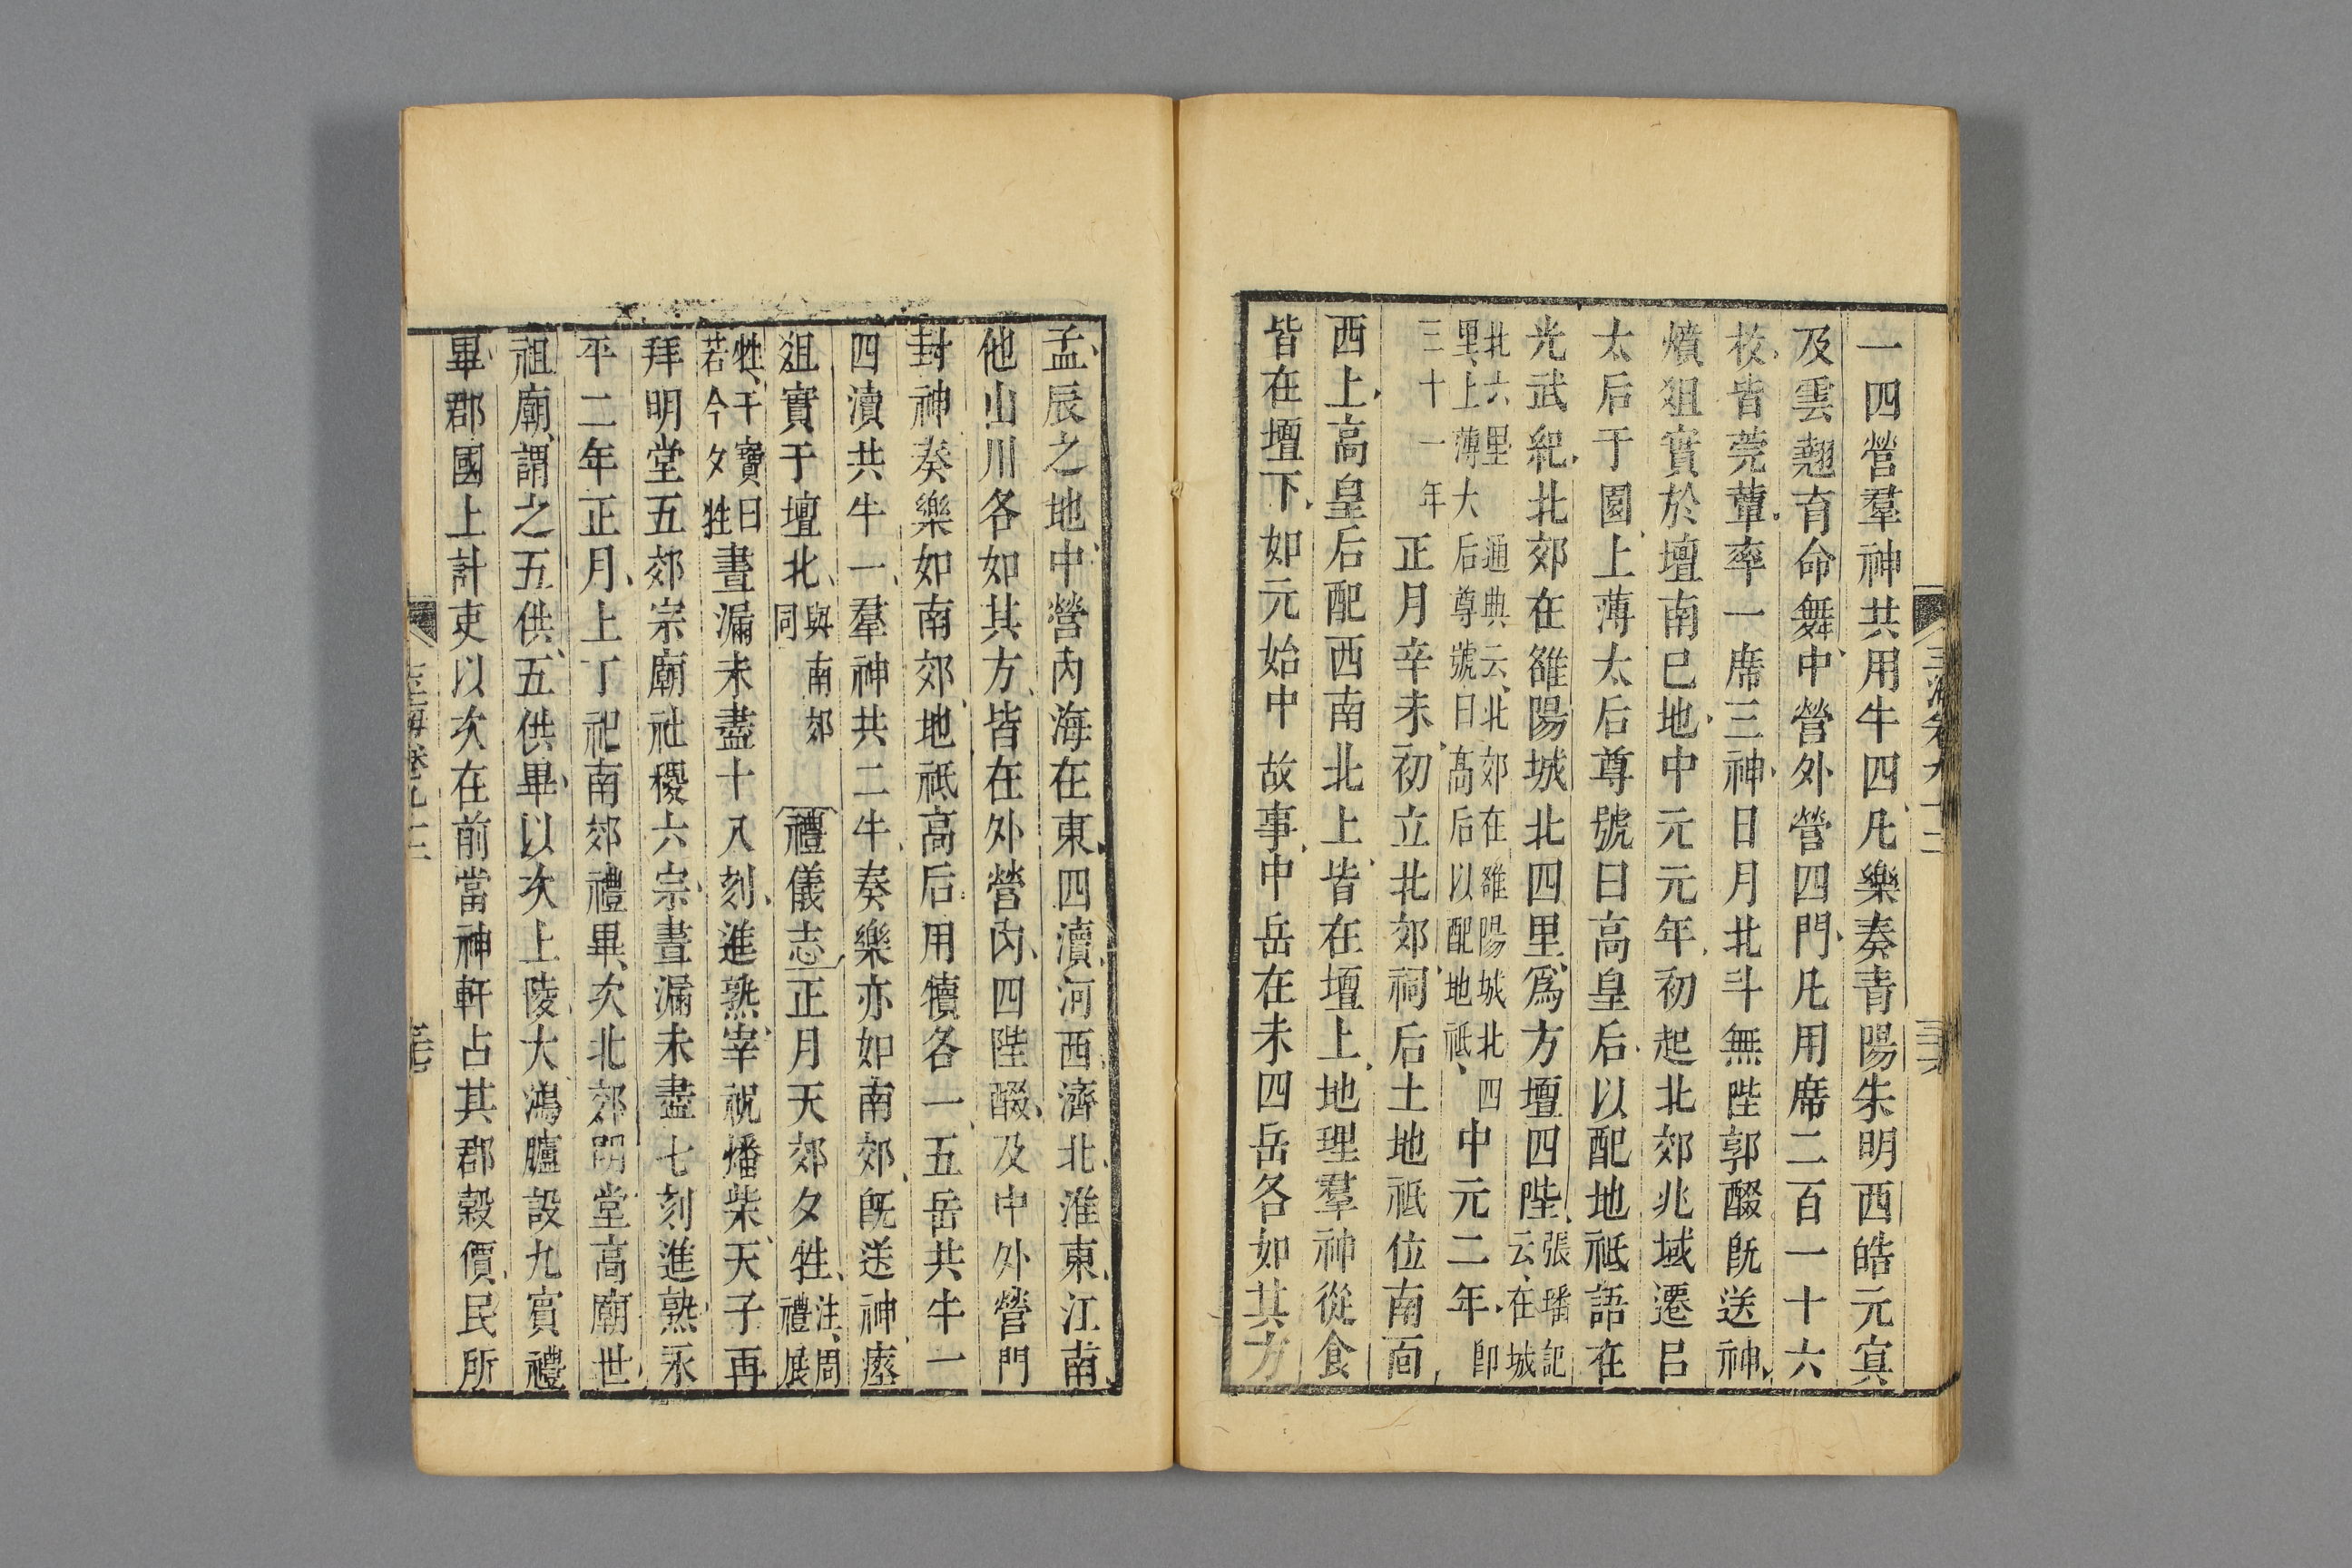 一四營羣神共用牛四凡樂奏青陽朱明西皓元寘
及雲翹育命舞中營外營四門凡用席二百一十六
枚皆莞蕇率一席三神日月北斗無陛郭醊旣送神
燌俎實於壇南巳地中元元年初起北郊兆域遷呂
太后于園上薄太后尊號曰高皇后以配地祇語在
光武紀北郊在雒陽城北四里爲方壇四陛張璠記云在城
北六里通典云北郊在雒陽城北四里上薄大后尊號曰高后以配地祇中元二年卽
三十一年正月辛未初立北郊祠后土地祇位南面
西上高皇后配西南北上皆在壇上地理羣神從食
皆在壇下如元始中故事中岳在未四岳各如其方
孟辰之地中營內海在東四瀆河西濟北淮東江南
他山川各如其方皆在外營內四陛醊及中外營門
封神奏樂如南郊地祇高后用犢各一五岳共牛一
四瀆共牛一羣神共二牛奏樂亦如南郊旣送神瘞
俎實于壇北與南郊同禮儀志正月天郊夕牲注周禮展
牲干寶曰若今夕牲晝漏未盡十八刻進熟宰祝燔柴天子再
拜明堂五郊宗廟社稷六宗晝漏未盡七刻進熟永
平二年正月上丁祀南郊禮畢次北郊明堂高廟世
祖廟謂之五供五供畢以次上陵大鴻臚設九賓禮
畢郡國上計吏以次在前當神軒占其郡穀價民所